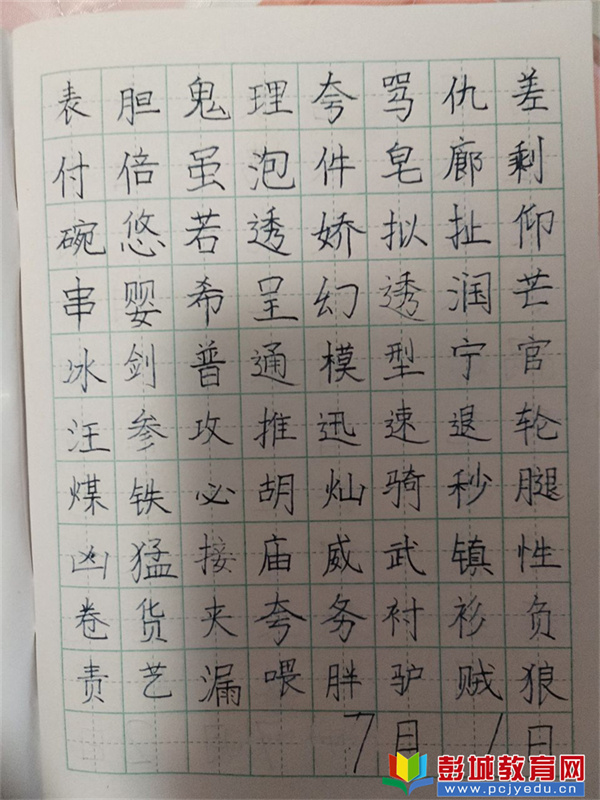 表胆鬼理夸骂仇差
付倍虽泡件皂廊剩
碗悠若透娇拟扯仰
串婴希呈幻透润芒
冰剑普通模型宁官
汪参攻推迅速退轮
煤铁必胡灿骑秒腿
凶猛接庙威武镇性
卷货夹夸务衬衫负
责艺漏喂胖驴贼狼
7月1日
彭城教育网
www.pcjyedu.cn